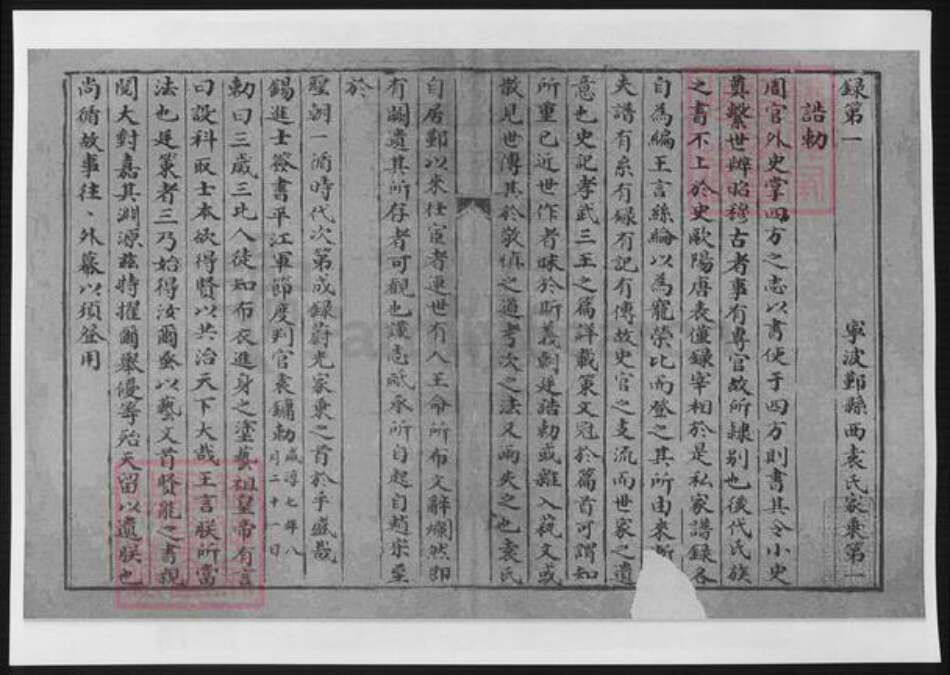 録第一 寧波鄞縣西袁氏家乗第一
誥勅
周官外史掌四方之志以書使于四方則書其令小史
奠繫世辨昭穆古者事有專官故所隸別也後代氏族
之書不上於史歐陽唐表僅録宰相於是私家譜録各
自為編王言絲綸以為寵榮比而登之其所由来
夫譜有系有録有記有傳故史官之支流而世家之遺
意也史記孝武三王之篇詳載策文冠於篇首可謂知
所重已近世作者昧於斯義制建誥勅或雜入藝文或
散見世傳其於敬慎之道考次之法又兩失之也袁氏
自居鄞以来仕宦者連世有人王命所布文辭爛然即
有闕遺其所存者可觀也謹志祗承所自起自趙宋至
於
聖朝一循時代次第成録蔚光家乗之首於乎盛哉
錫進士簽書平江軍節度判官袁鏞勅咸淳七年八月二十一日
勅曰三歲三比人徒知布衣進身之塗藝祖皇帝有言
曰設科取士本欲得賢以共治天下大哉王言朕所當
法也延策者三乃始得汝爾垂以藝文首賢能之書親
閱大對嘉其淵源茲特擢爾舉優等殆天留以遺朕也
尚循故事往、外幕以須登用